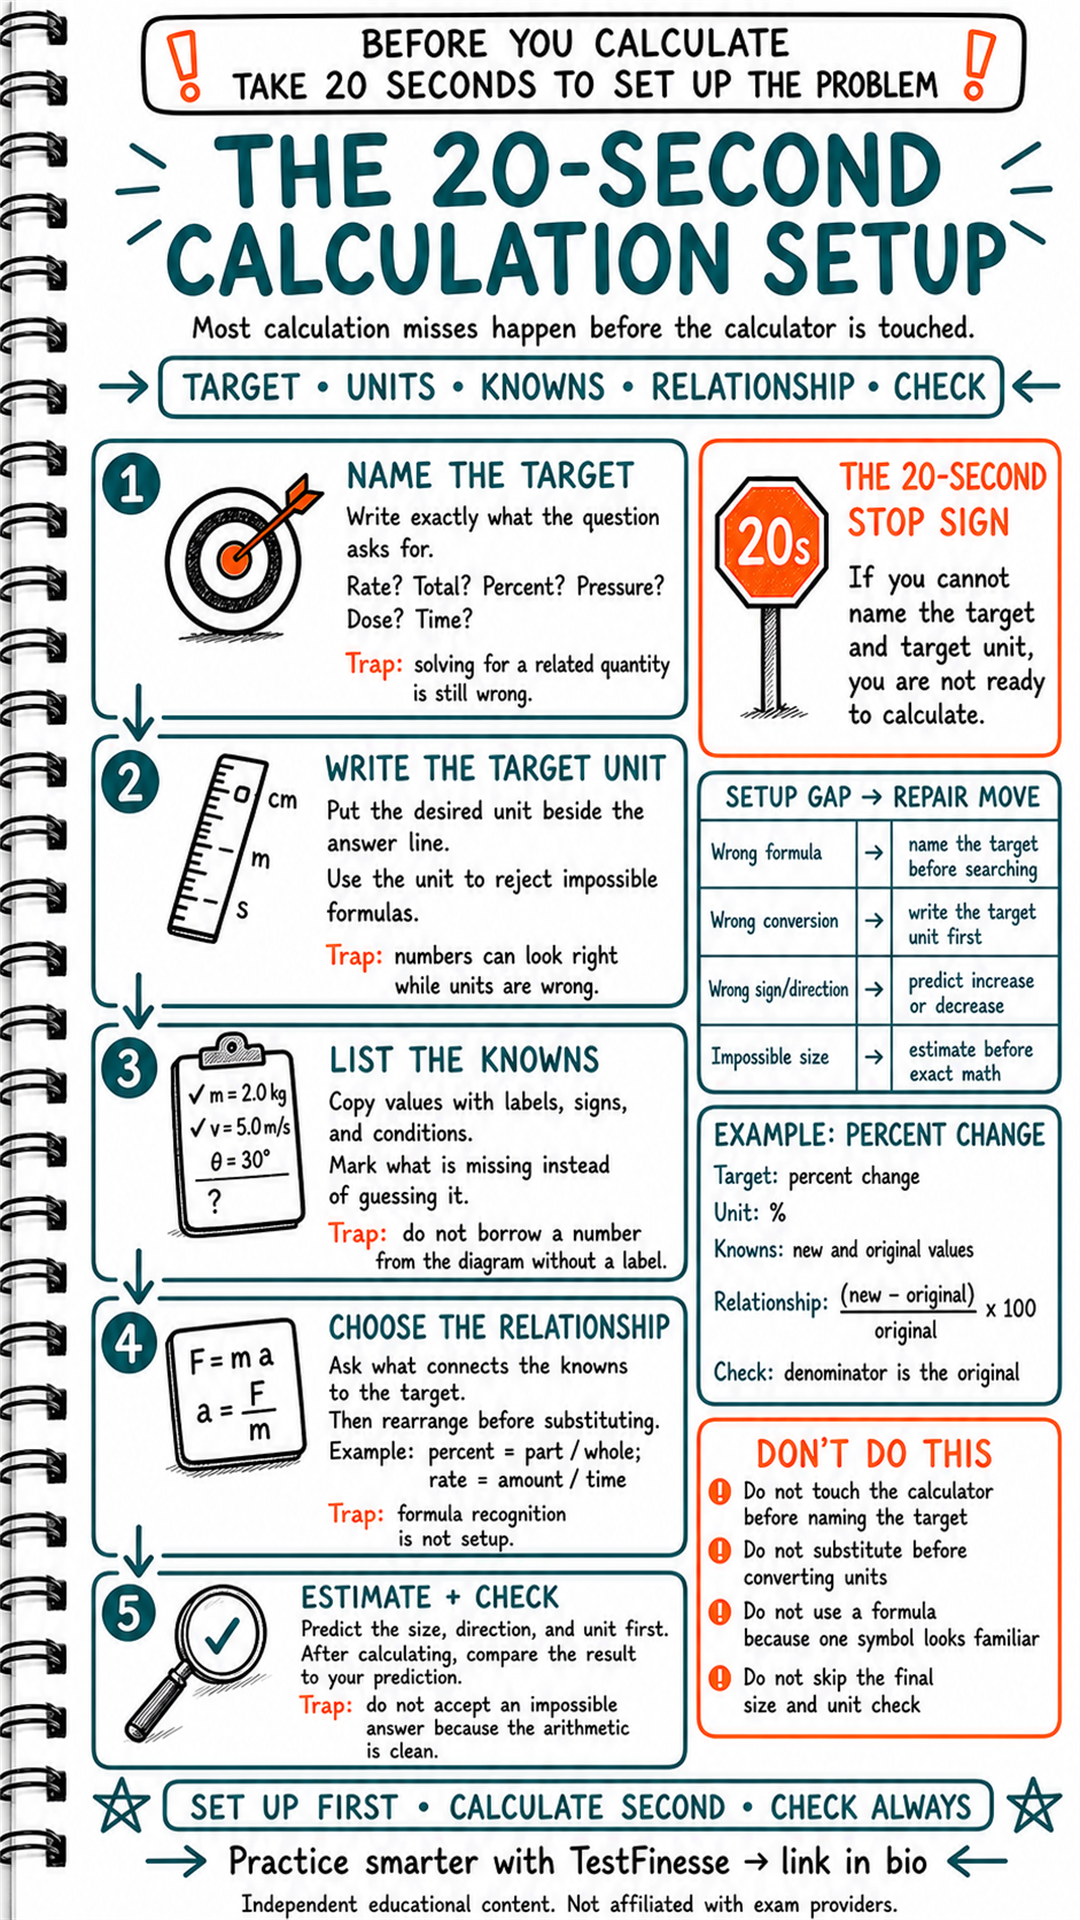 BEFORE YOU CALCULATE
TAKE 20 SECONDS TO SET UP THE PROBLEM
THE 20-SECOND
CALCULATION SETUP
Most calculation misses happen before the calculator is touched.
→ TARGET • UNITS • KNOWNS • RELATIONSHIP • CHECK ←
1
NAME THE TARGET
Write exactly what the question
asks for.
Rate? Total? Percent? Pressure?
Dose? Time?
Trap: solving for a related quantity
is still wrong.
2
cm
m
s
WRITE THE TARGET UNIT
Put the desired unit beside the
answer line.
Use the unit to reject impossible
formulas.
Trap: numbers can look right
while units are wrong.
3
✓ m = 2.0 kg
✓ v = 5.0 m/s
θ = 30°
?
LIST THE KNOWNS
Copy values with labels, signs,
and conditions.
Mark what is missing instead
of guessing it.
Trap: do not borrow a number
from the diagram without a label.
4
F = m a
a = F
m
CHOOSE THE RELATIONSHIP
Ask what connects the knowns
to the target.
Then rearrange before substituting.
Example: percent = part / whole;
rate = amount / time
Trap: formula recognition
is not setup.
5
ESTIMATE + CHECK
Predict the size, direction, and unit first.
After calculating, compare the result
to your prediction.
Trap: do not accept an impossible
answer because the arithmetic
is clean.
20s
THE 20-SECOND
STOP SIGN
If you cannot
name the target
and target unit,
you are not ready
to calculate.
SETUP GAP → REPAIR MOVE
Wrong formula → name the target
before searching
Wrong conversion → write the target
unit first
Wrong sign/direction → predict increase
or decrease
Impossible size → estimate before
exact math
EXAMPLE: PERCENT CHANGE
Target: percent change
Unit: %
Knowns: new and original values
Relationship: (new − original) x 100
original
Check: denominator is the original
DON'T DO THIS
! Do not touch the calculator
before naming the target
! Do not substitute before
converting units
! Do not use a formula
because one symbol looks familiar
! Do not skip the final
size and unit check
SET UP FIRST • CALCULATE SECOND • CHECK ALWAYS
→ Practice smarter with TestFinesse → link in bio ←
Independent educational content. Not affiliated with exam providers.